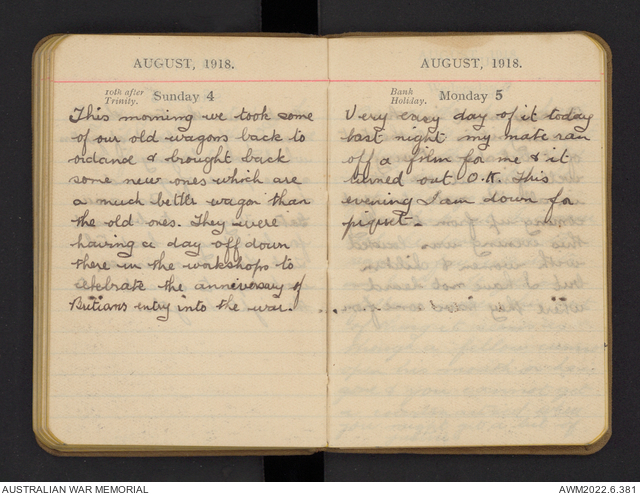 AUGUST, 1918.
10th after
Trinity.
Sunday 4
This morning we took some
of our old wagons back to
ordance & brought back
some new ones which are
a much better wagon than
the old ones. They were
having a day off down
there in the workshops to
celebrate the anniversary of
Britians entry into the war.
AUGUST, 1918.
Bank
Holiday.
Monday 5
Very easy day of it today
last night my mate ran
off a film for me & it
turned out O.K. This
evening I am down for
piquet.
AUSTRALIAN WAR MEMORIAL
AWM2022.6.381